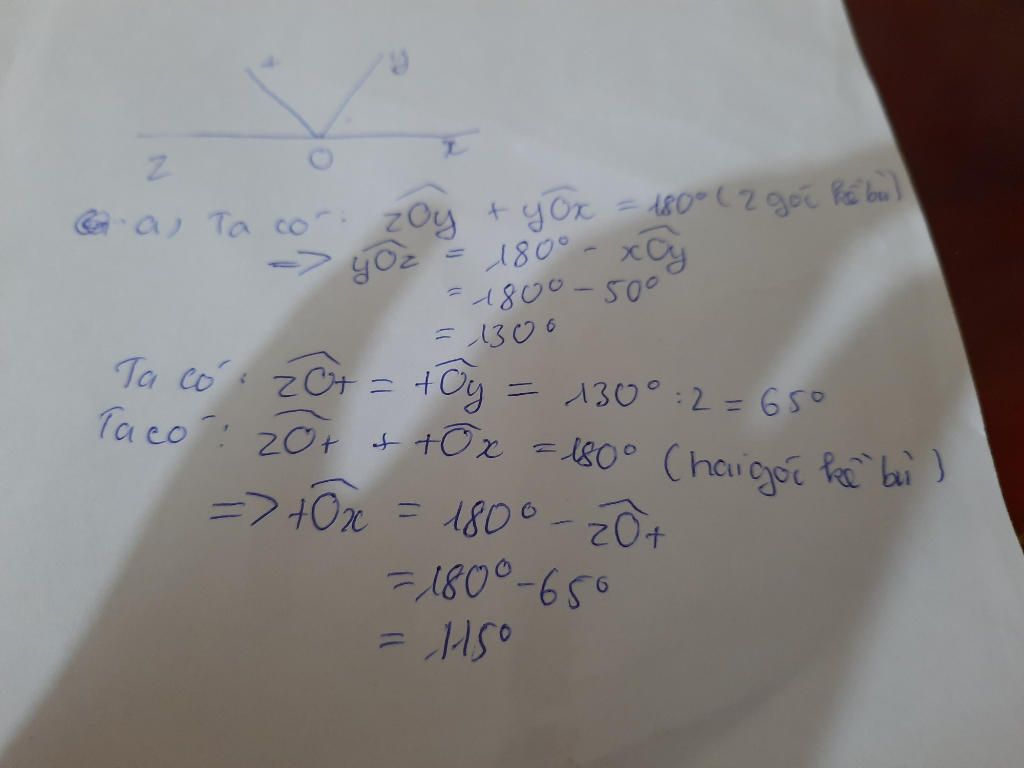 t y
z O x
a, Ta có: zOy + yOx = 180° (2 góc kề bù)
=> yOz = 180° - xOy
= 180° - 50°
= 130°
Ta có: zOt = tOy = 130° : 2 = 65°
Ta có: zOt + tOx = 180° (hai góc kề bù)
=> tOx = 180° - zOt
= 180° - 65°
= 115°